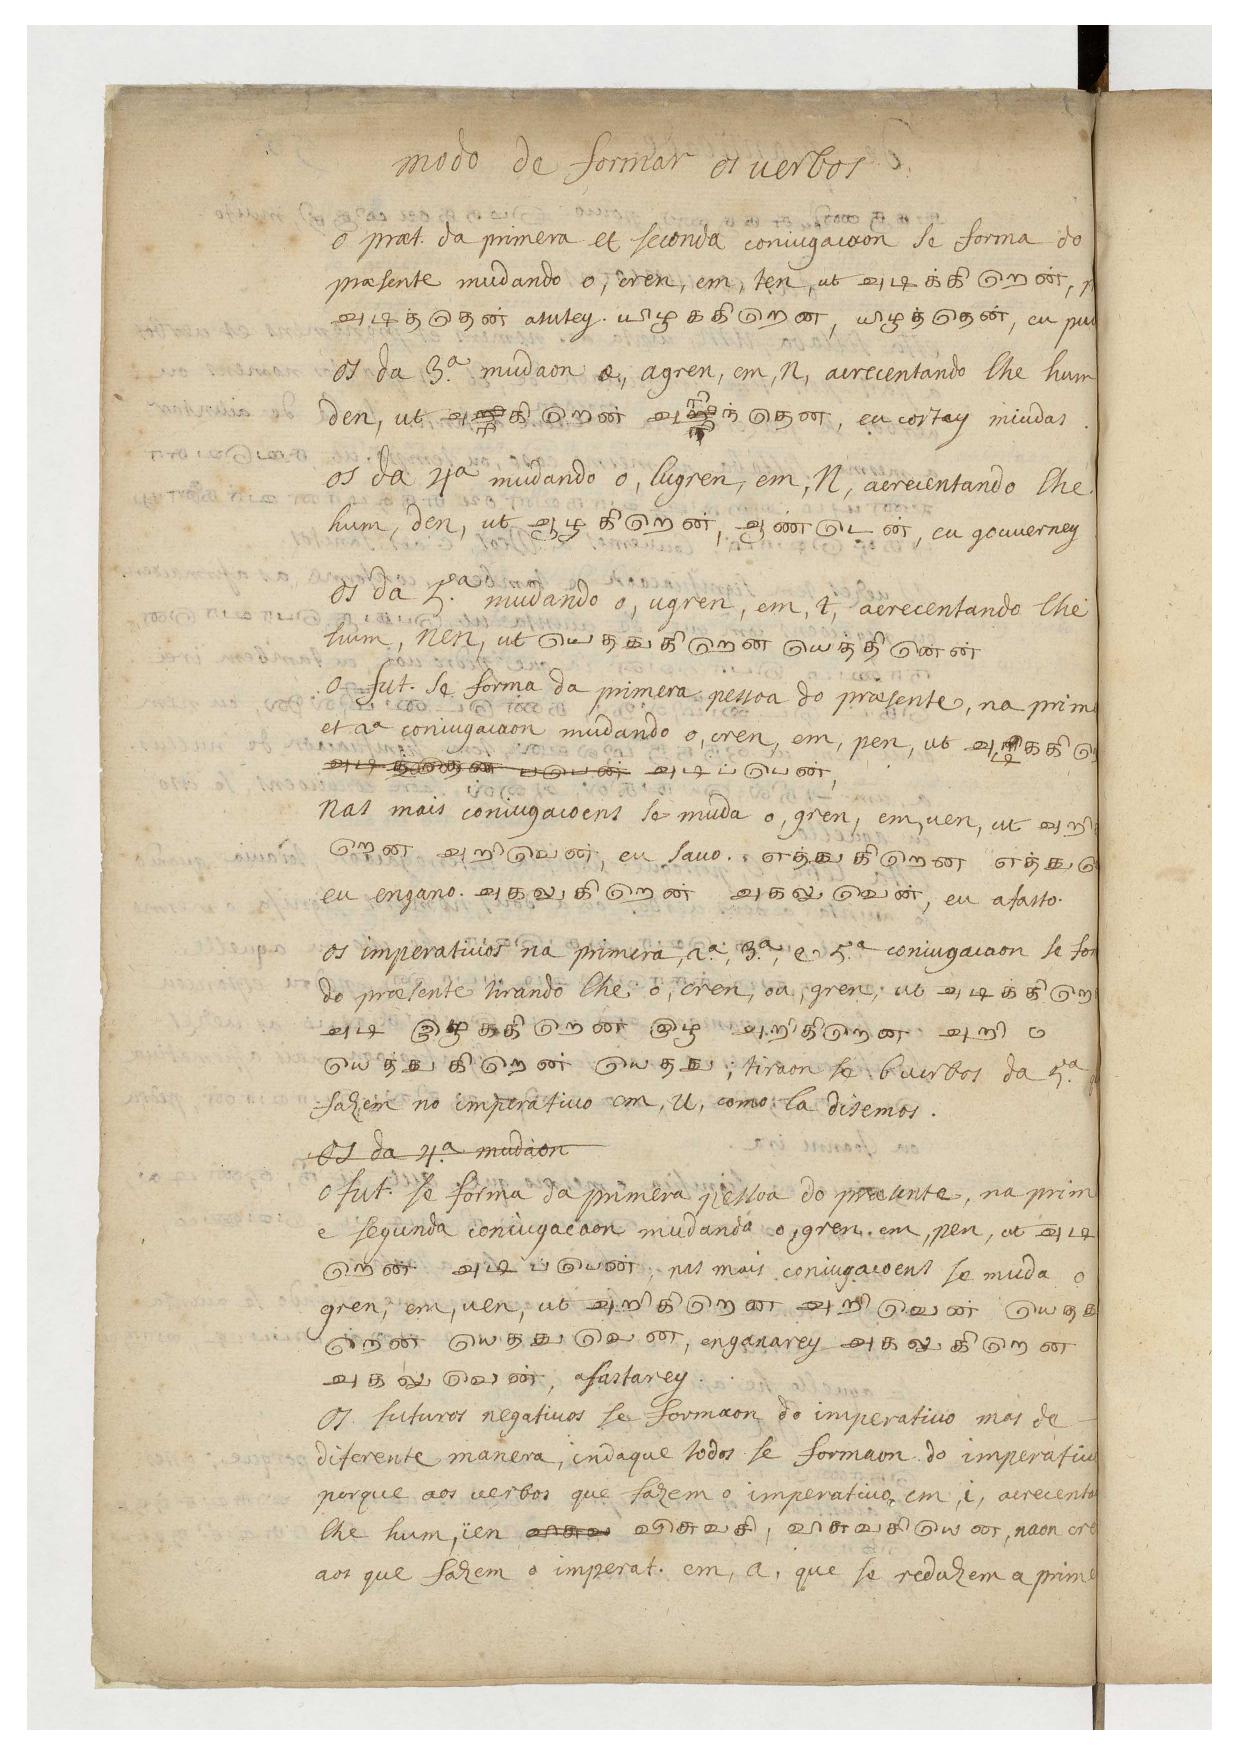 modo de formar os verbos
o præt. da primera et seconda coniugacaon se forma do
præsente mudando o, cren, em, ten, ut அடிக்கிறென்,
அடித்தென் asutey. யிழககிறென, யிழத்தென், eu
os da 3.ª mudaon o, agren, em, n, acrecentando lhe hum
den, ut கிறென் ந்தென, eu cortey miudas
os da 4ª mudando o, lugren, em, N, acrecentando lhe
hum, den, ut ஆழகிறென், ஆண்டென், eu gouverney
os da 5.ª mudando o, ugren, em, t, acrecentando lhe
hum, nen, ut யெதவுகிறென் யெத்தினென்
o fut. se forma da primera pessoa do præsente, na prim
et 2ª coniugacaon mudando o, cren, em, pen, ut
அடிப்பென்,
nas mais coniugacoens se muda o, gren, em, uen, ut அறி
றென அறிவென், eu savo. எத்துகிறென எத்து
eu engano. அகலுகிறென் அகலுவென், eu afasto.
os imperativos na primera, 2.ª, 3.ª, e 5.ª coniugacaon se for
do præsente tirando lhe o, cren, ou, gren, ut அடிக்கிறெ
அடி இழககிறென் இழ அறிகிறென அறி
யெத்துகிறென் யெதது, tiraon se 6 verbos da 5.ª
fazem no imperativo em, u, como la disemos.
os da 4.ª mudaon
o fut. se forma da primera pessoa do præsente, na prim
e segunda coniugacaon mudanda o, gren. em, pen, ut அடி
றென் அடிப்பென், nas mais coniugacoens se muda o
gren, em, uen, ut அறிகிறென அறிவென் யெதத
றென் யெததுவென, enganarey அகலுகிறென
அகலுவென், afastarey.
os futuros negativos se formaon do imperativo mas de
diferente manera, indaque todos se formaon do imperativ
porque aos verbos que fazem o imperativo em, i, acrecenta
lhe hum, ïen விசுவசி, விசுவசியென, naon cre
aos que fazem o imperat. em, a, que se reduzem a prime